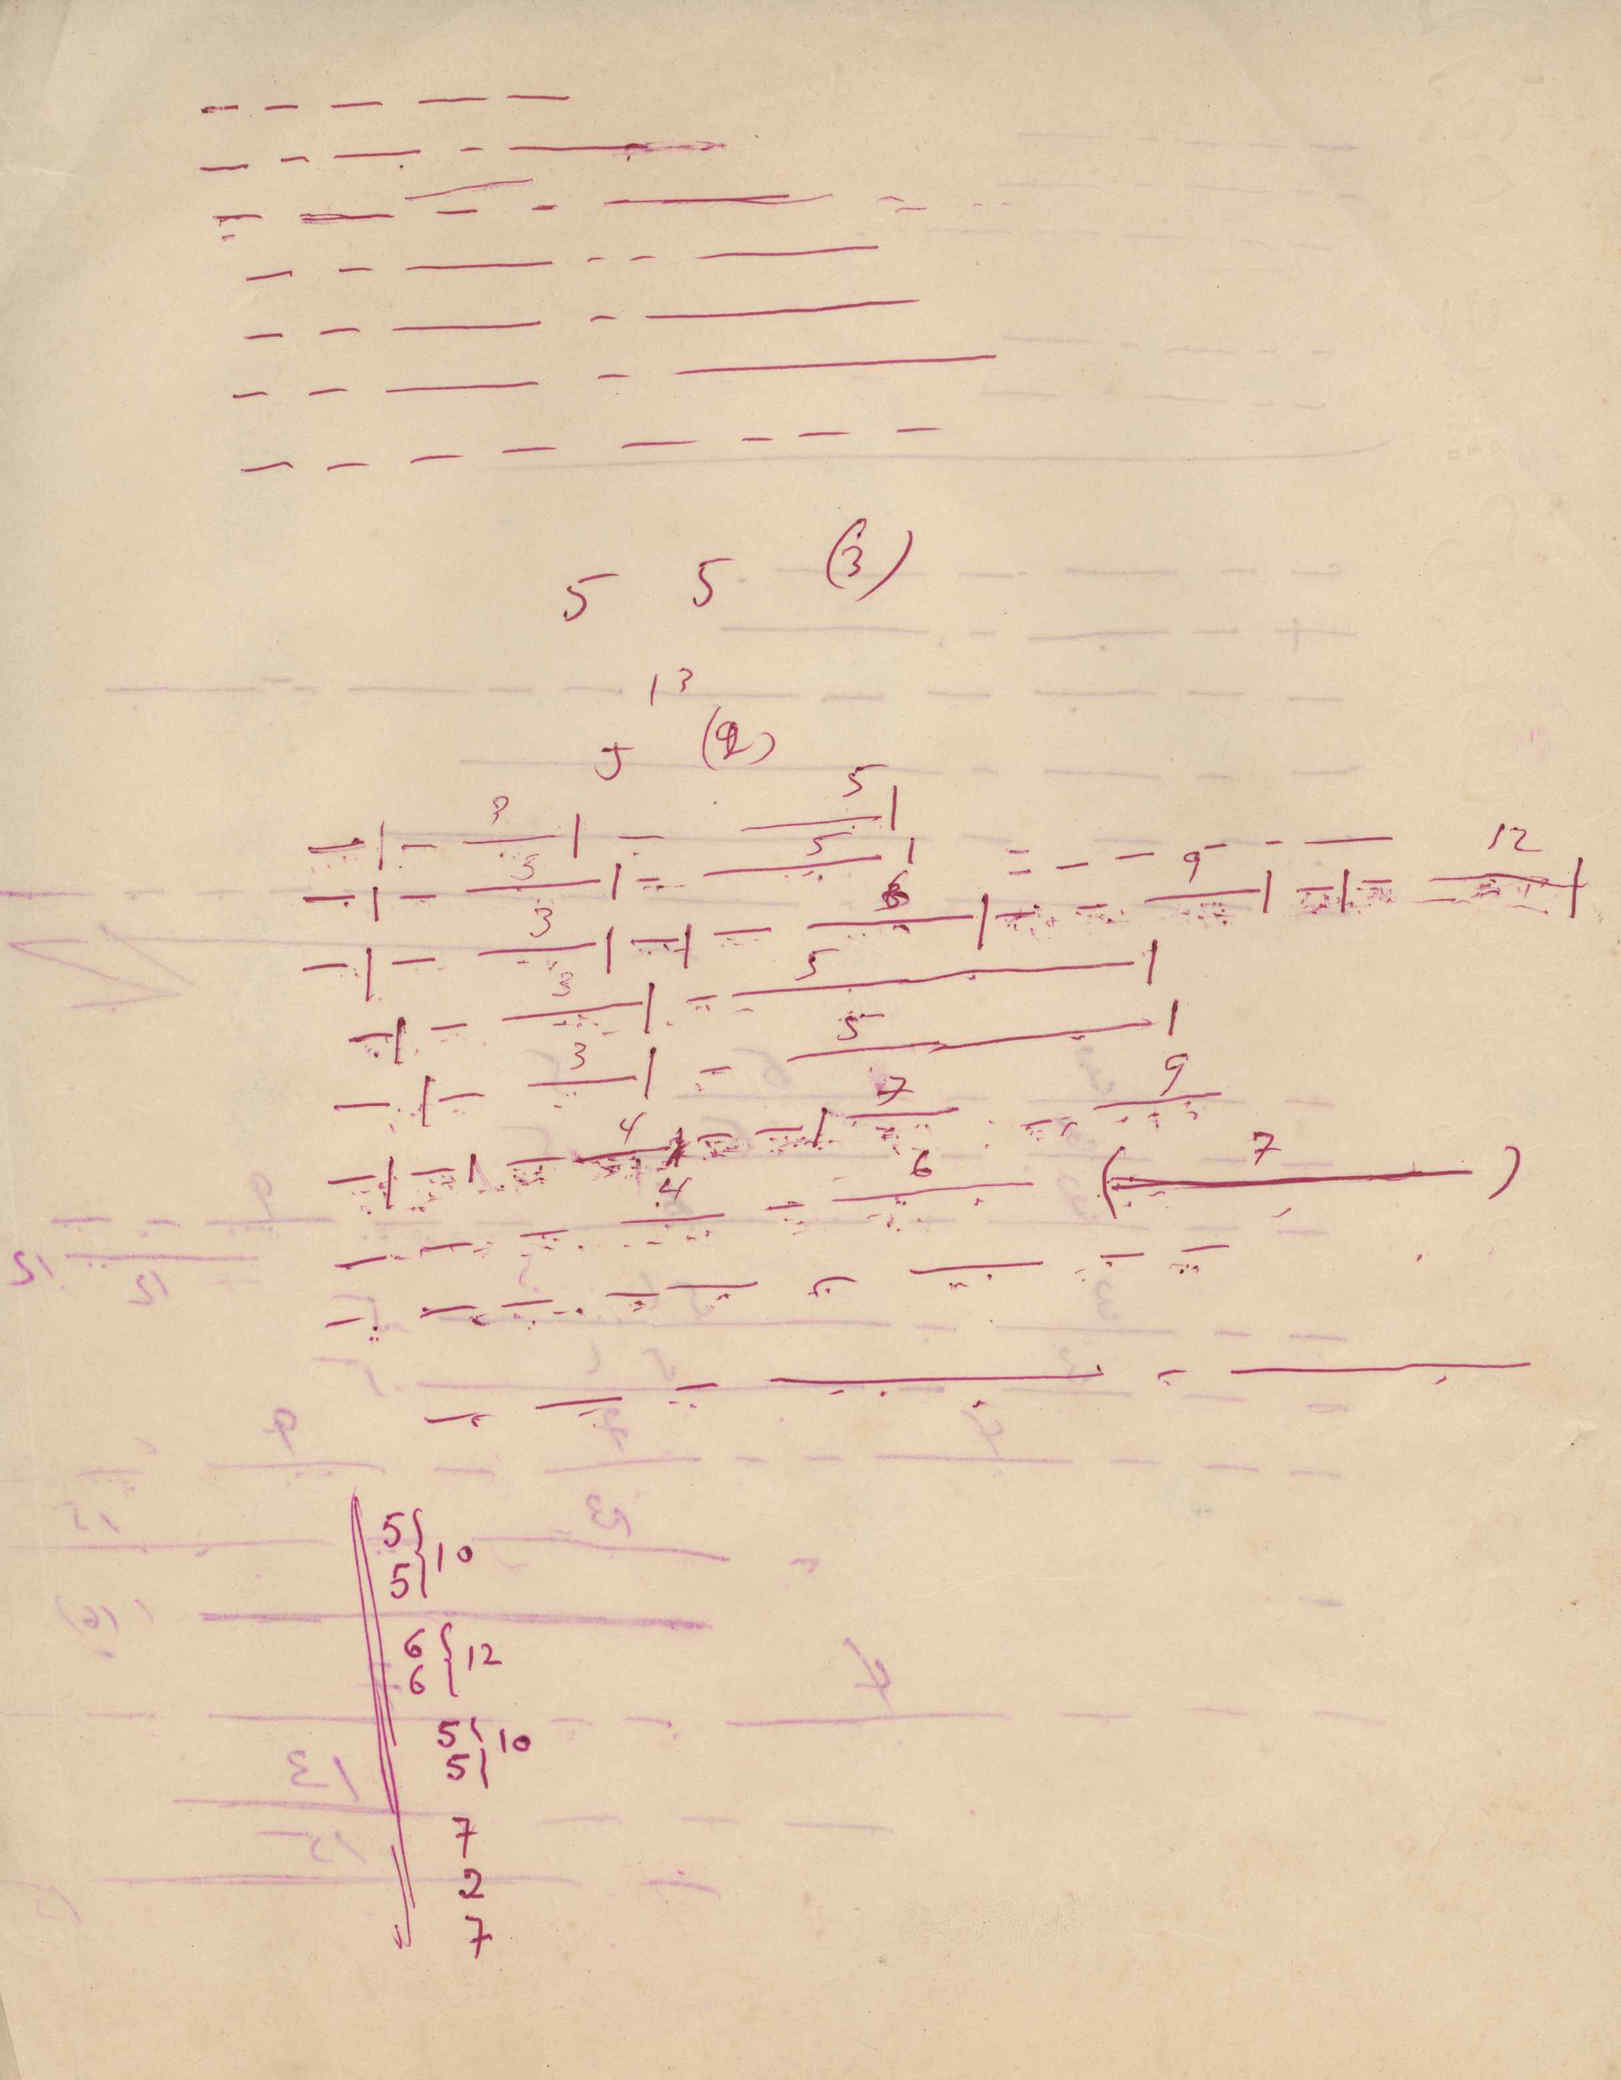 5 5 (3)
13
5 (2)
3 5
5 5 9 12
3 6
3 5
3 5
4 7 9
4 6 ( 7 )
5
5 } 10
6
6 } 12
5
5 } 10
7
2
7